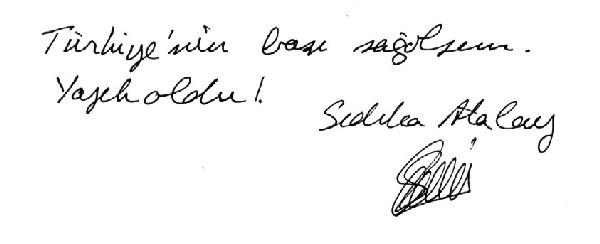 Türkiye'nin başı sağolsun.
Yazık oldu!
Sıdıka Atalay